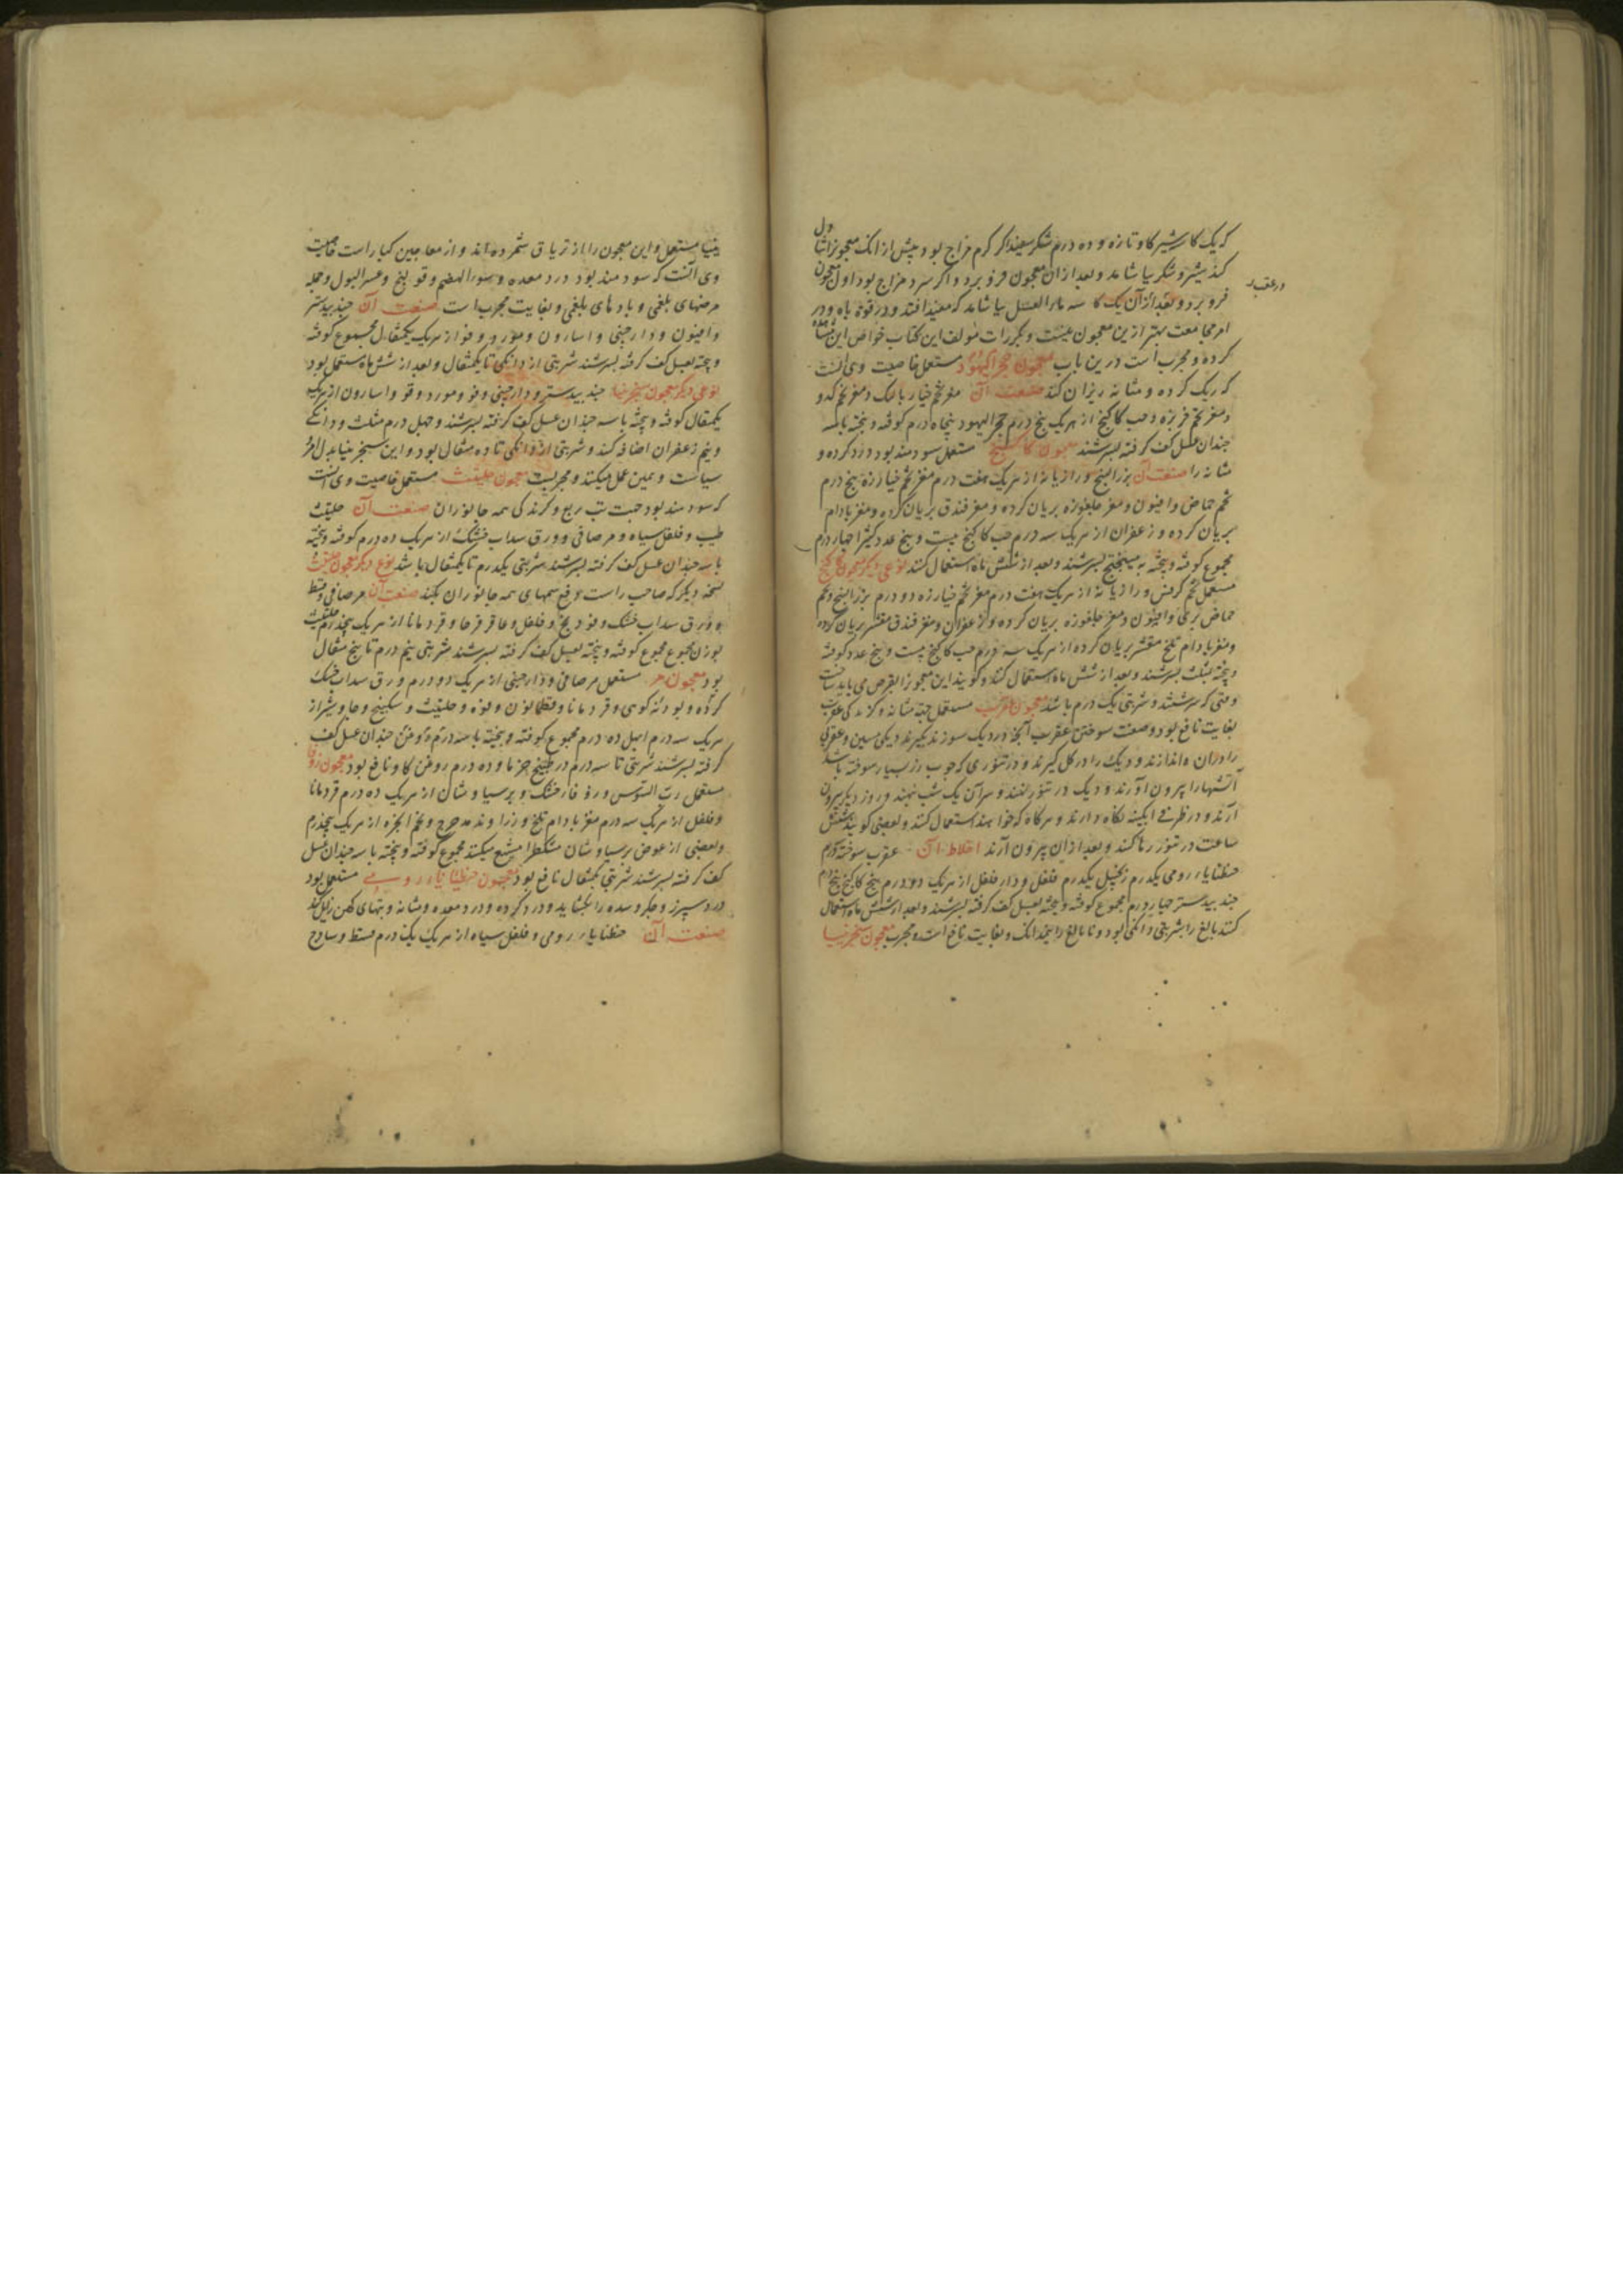 که یک کاسه شیر گاو تازه و ده درم شکر سفید اگر گرم مزاج بود پیش از آنک معجون را تناول
کند شیر و شکر بیاشامد و بعد از آن معجون فرو برد و اگر سرد مزاج بود اول معجون
در عقب
فرو برد و بعد از آن یک کاسه ماء العسل بیاشامد که مفید افتد و در قوة باه و در
امر مجامعت بهتر ازین معجون نیست و بکرات مولف این کتاب خواص این مشاهده
کرده و مجرب است درین باب معجون حجر الیهود مستعمل خاصیت وی آنست
که ریک کرده و مثانه بریزاند صنعت آن مغز تخم خیار بالنک و مغز تخم کدو
و مغز تخم خربزه و حب کاکنج از هر یک پنج درم حجر الیهود پنجاه درم کوفته و بیخته با سه
چندان عسل کف کرفته بسرشند معجون کاکنج مستعمل سودمند بود درد کرده و
مثانه را صنعت آن بزر البنج و رازیانه از هر یک هفت درم مغز تخم خیارزه پنج درم
تخم حماض و افیون و مغز چلغوزه بریان کرده و مغز فندق بریان کرده و مغز بادام
بریان کرده و زعفران از هر یک سه درم حب کاکنج بیست و پنج عدد کثیرا چهار درم
مجموع کوفته و بیخته به میبختج بسرشند و بعد از شش ماه استعمال کنند نوعی دیگر معجون کاکنج
مستعمل تخم کرفس و رازیانه از هر یک هفت درم مغز تخم خیارزه دو درم بزر البنج و تخم
حماض بری و افیون و مغز چلغوزه بریان کرده و زعفران و مغز فندق مقشر بریان کرده
و مغز بادام تلخ مقشر بریان کرده از هر یک سه درم حب کاکنج بیست و پنج عدد کوفته
و بیخته بمثلث بسرشند و بعد از شش ماه استعمال کنند و گویند این معجون را بقرص می باید ساخت
وقتی که سرشتند و شربتی یک درم باشد معجون عقرب مستعمل جهة مثانه و کزندگی عقرب
بغایت نافع بود و صفت سوختن عقرب آنک در دیک سوزند بکیرند دیکی مسین و عقرب
را در آن اندازند و دیک را در کل کیرند و در تنوری که چوب رز بسیار سوخته باشد
آتشها را بیرون آورند و دیک در تنور نهند و سر آن یک شب نهند و روز دیگر بیرون
آرند و در ظرفی ابکینه نکاه دارند و هرکاه که خواهند استعمال کنند و بعضی کویند شش
ساعت در تنور رها کنند و بعد از آن بیرون آرند اخلاط آن عقرب سوخته درم
جنطیانای رومی یکدرم زنجبیل یکدرم فلفل و دار فلفل از هر یک دو درم بیخ کاکنج پنج درم
جند بیدستر چهار درم مجموع کوفته و بیخته بعسل کف کرفته بسرشند و بعد از شش ماه استعمال
کنند بالغ را شربتی دانکی بود و نابالغ را نیم دانک و بغایت نافع است و مجرب معجون سنجرنیا
یینیا مستعمل و این معجون را از تریاق شمرده اند و از معاجین کبار است خاصیت
وی آنست که سودمند بود درد معده و سوء الهضم و قولنج و عسر البول و جمله
مرضهای بلغمی و بادهای بلغمی و بغایت مجرب است صنعت آن جند بیدستر
و افیون و دارچینی و اسارون و مو و دوقو از هر یک یکمثقال مجموع کوفته
و بیخته بعسل کف کرفته بسرشند شربتی از دانکی تا یکمثقال و بعد از شش ماه مستعمل بود
نوعی دیگر معجون سنجرنیا جند بیدستر و دارچینی و فو و مو و دوقو و اسارون از هر یک
یکمثقال کوفته و بیخته با سه چندان عسل کف کرفته بسرشند و چهل درم مثلث و دانکی
و نیم زعفران اضافه کنند و شربتی از دانکی تا ده مثقال بود و این سنجرنیا بدل امر
سیاست و همین عمل میکند و مجربست معجون حلتیت مستعمل خاصیت وی آنست
که سودمند بود جهت تب ربع و کزندکی همه جانوران صنعت آن حلتیت
طیب و فلفل سیاه و مر صافی و ورق سداب خشک از هر یک ده درم کوفته و بیخته
با سه چندان عسل کف کرفته بسرشند شربتی یکدرم تا یکمثقال باشد نوع دیگر معجون حلتیت
نسخه دیگر که صاحب راست دفع سمهای همه جانوران بکند صنعت آن مر صافی و قسط
و ورق سداب خشک و فودنج و فلفل و عاقرقرحا و قردمانا از هر یک پنجدرم حلتیت
بوزن مجموع مجموع کوفته و بیخته بعسل کف کرفته بسرشند شربتی نیم درم تا پنج مثقال
بود معجون مر مستعمل مر صافی و دارچینی از هر یک دو درم ورق سداب خشک
کرده و پودنه کوهی و قردمانا و فطراسالیون و فوه و حلتیت و سکبینج و جاوشیر از
هر یک سه درم ابهل ده درم مجموع کوفته و بیخته با سه درم روغن چندان عسل کف
کرفته بسرشند شربتی تا سه درم در طبیخ خرما و ده درم روغن کاو نافع بود معجون زوفا
مستعمل رب السوس و زوفا خشک و پرسیاوشان از هر یک ده درم قردمانا
و فلفل از هر یک سه درم مغز بادام تلخ و زراوند مدحرج و تخم انجره از هر یک پنجدرم
و بعضی از عوض پرسیاوشان مشکطرامشیع میکنند مجموع کوفته و بیخته با سه چندان عسل
کف کرفته بسرشند شربتی یکمثقال نافع بود معجون جنطیانای رومی مستعمل بود
درد سپرز و جکر و سده را بکشاید و درد کرده و درد معده و مثانه و تبهای کهن زایل کند
صنعت آن جنطیانای رومی و فلفل سیاه از هر یک یک درم قسط و سادج